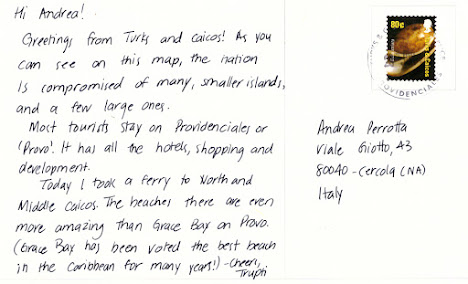 Hi Andrea!
Greetings from Turks and Caicos! As you
can see on this map, the nation
is compromised of many, smaller islands,
and a few large ones.
Most tourists stay on Providenciales or
'Provo'. It has all the hotels, shopping and
development.
Today I took a ferry to North and
Middle Caicos. The beaches there are even
more amazing than Grace Bay on Provo.
(Grace Bay has been voted the best beach
in the Caribbean for many years!) -Cheers,
Trupti
80¢
PROVIDENCIALES
Andrea Perrotta
Viale Giotto, 43
80040 - Cercola (NA)
Italy